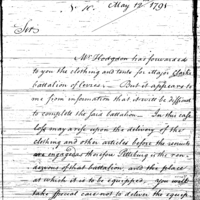 No. 10. May 12th 1791
Sir,
Mr. Hodgdon has forwarded
to you the clothing and tents for Major Clarks
battalion of levies. — But it appears to
me from information that it will be difficult
to complete the said battalion — In this case
loss may arise upon the delivery of the
clothing and other articles before the recruits
are engaged therefore Pittsburg is the ren-
dezvous of that battalion and the place
at which it is to be equipped, You will
take special care not to deliver the equip-